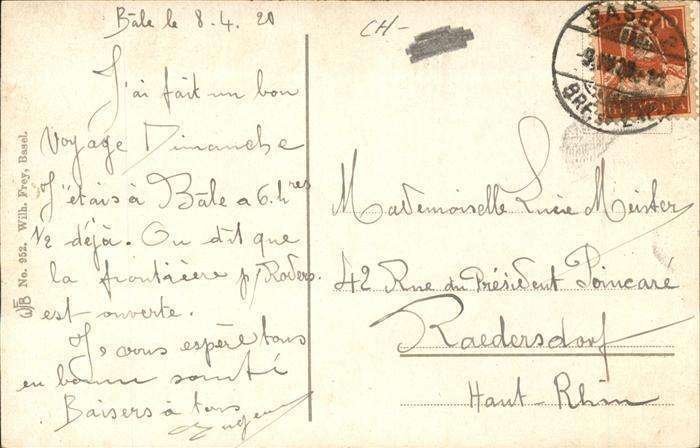 Bâle le 8.4.20
J'ai fait un bon
voyage Dimanche
J'étais à Bâle a 6.hres
1/2 déjà. On dit que
la frontière p/Roders.
est ouverte.
Je vous espère tous
en bonne santé
Baisers à tous
CH-
BASEL 2
Mademoiselle Lucie Meister
42 Rue du Président Poincaré
Raedersdorf
Haut-Rhin
WFB No. 952. Wilh. Frey, Basel.